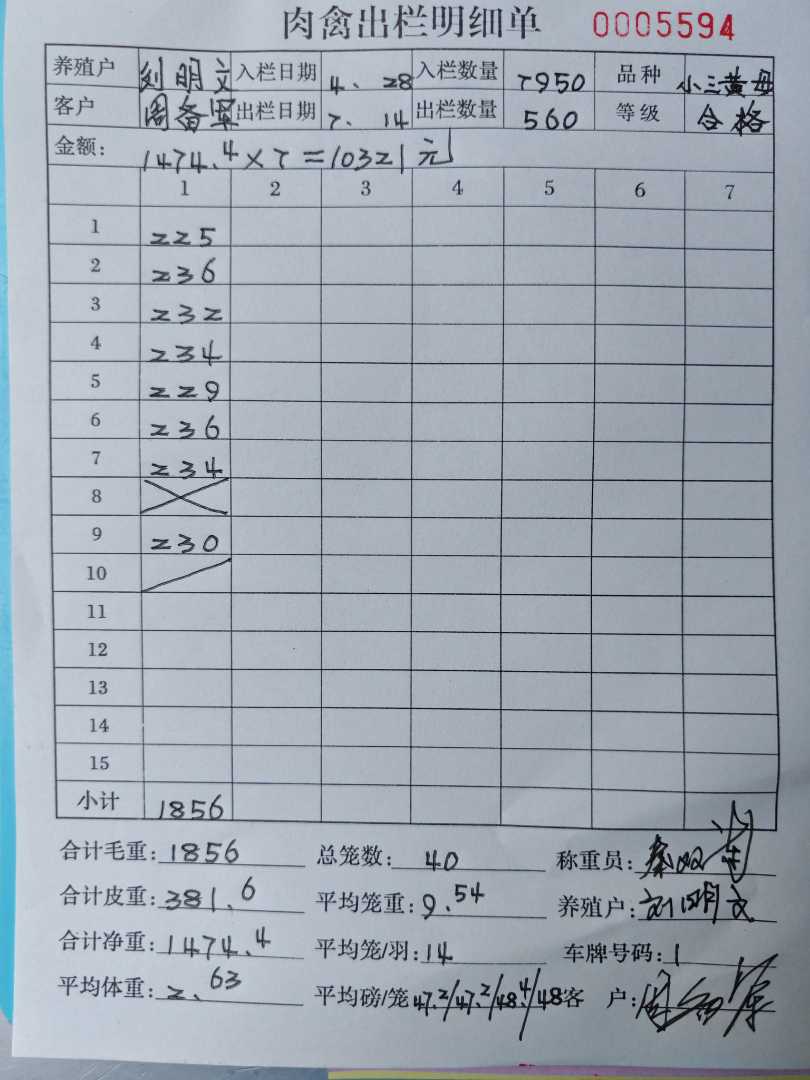 肉禽出栏明细单 0005594
养殖户 刘明文 入栏日期 4、28 入栏数量 7950 品种 小三黄母
客户 周备军 出栏日期 7、14 出栏数量 560 等级 合格
金额: 1474.4×7=10321元
1 2 3 4 5 6 7
1 225
2 236
3 232
4 234
5 229
6 236
7 234
8
9 230
10
11
12
13
14
15
小计 1856
合计毛重:1856 总笼数:40 称重员:
合计皮重:381.6 平均笼重:9.54 养殖户:刘明文
合计净重:1474.4 平均笼/羽:14 车牌号码:1
平均体重:2.63 平均磅/笼47.2/47.2/48.4/48客 户: